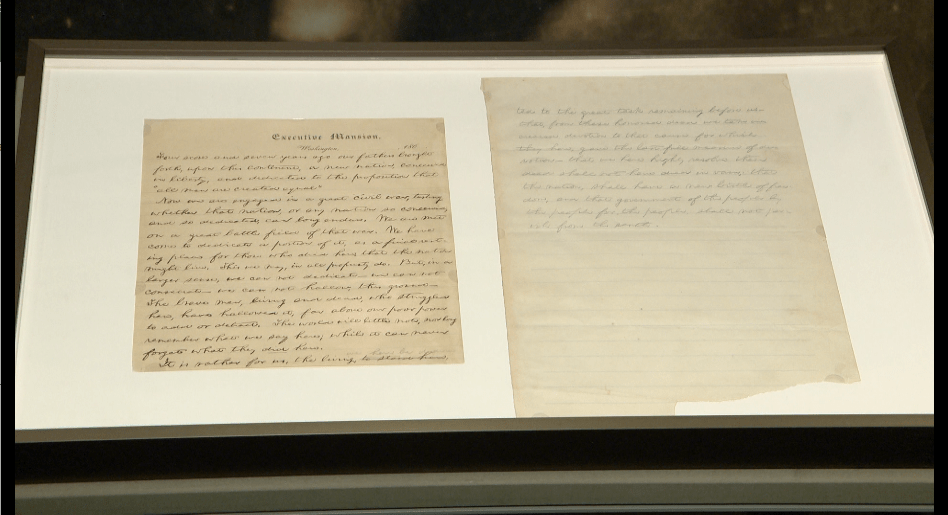 Executive Mansion,
Washington, , 186
Four score and seven years ago our fathers brought
forth, upon this continent, a new nation, conceived
in liberty, and dedicated to the proposition that
"all men are created equal"
Now we are engaged in a great civil war, testing
whether that nation, or any nation so conceived,
and so dedicated, can long endure. We are met
on a great battle field of that war. We have
come to dedicate a portion of it, as a final rest-
ing place for those who died here, that the nation
might live. This we may, in all propriety do. But, in a
larger sense, we can not dedicate — we can not
consecrate — we can not hallow, this ground —
The brave men, living and dead, who struggled
here, have hallowed it, far above our poor power
to add or detract. The world will little note, nor long
remember what we say here; while it can never
forget what they did here.
It is rather for us, the living, to stand here,
ted to the great task remaining before us —
that, from these honored dead we take in-
creased devotion to that cause for which
they here, gave the last full measure of de-
votion — that we here highly resolve these
dead shall not have died in vain; that
the nation, shall have a new birth of free-
dom, and that government of the people by
the people for the people, shall not per-
ish from the earth.